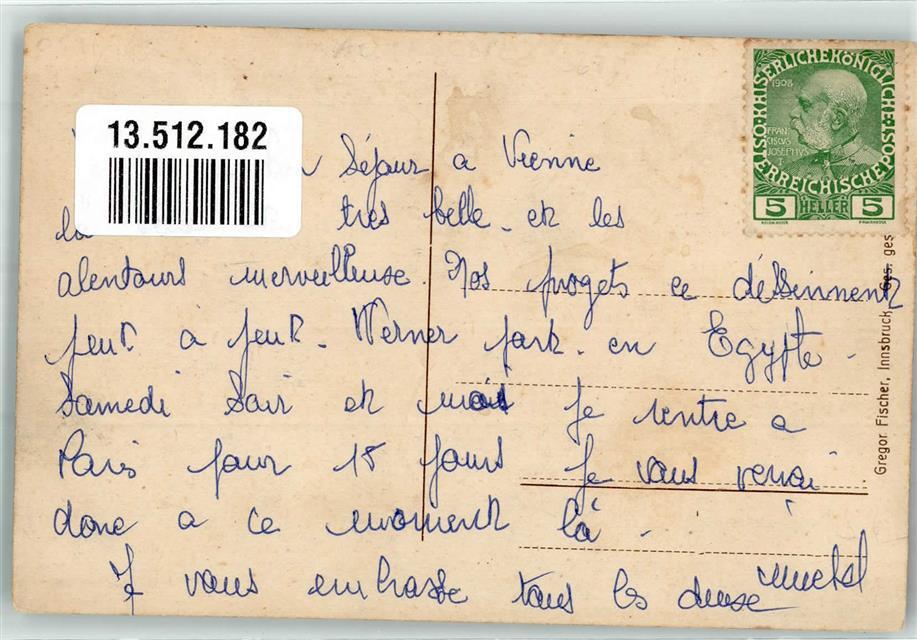 13.512.182
Séjour a Vienne
très belle. et les
alentours merveilleuse. Nos progets ce déssinnent
peut à peut. Werner part. en Egypte.
Samedi Soir et moi je rentre a
Paris pour 18 jours je vous verrai
donc a ce moment là.
Je vous embrasse tous les deuse
KAISERLICHEKÖNIGLICHE ÖSTERREICHISCHE POST
1908
FRANCISCUS JOSEPHUS I.
5 HELLER 5
Gregor Fischer, Innsbruck Ges. ges